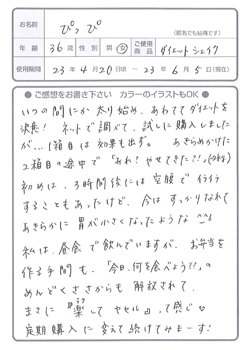 お名前 ぴっぴ (匿名でも結構です)
年齢 36歳 性別 男・女 ご使用商品 ダイエットシェイク
使用期間 23年4月20日頃 〜 23年6月5日(現在)
●ご感想をお書き下さい カラーのイラストもOK●
いつの間にか太り始め、あわててダイエットを
決意! ネットで調べて、試しに購入しました
が…1箱目は効果も出ず。 あきらめかけた
2箱目の途中で「あれ!やせてきた?!」(2kg)
初めは、3時間後には空腹でイライラ
することもあったけど、今はすっかりなれて
あきらかに胃が小さくなったような ^^!
私は、昼食で飲んでいますが、お弁当を
作る手間も、「今日、何を食べよう??」の
めんどくささからも解放されて、
まさに『楽してヤセル』って感じ♡
定期購入に変えて続けてみまーす!